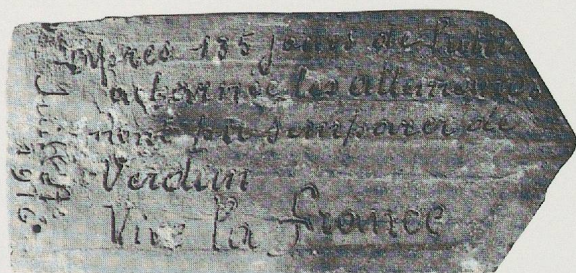 Apres 135 jours de lutte
acharnée les allemands
nont pu semparer de
Verdun
Vive la france
Juillet
1916.